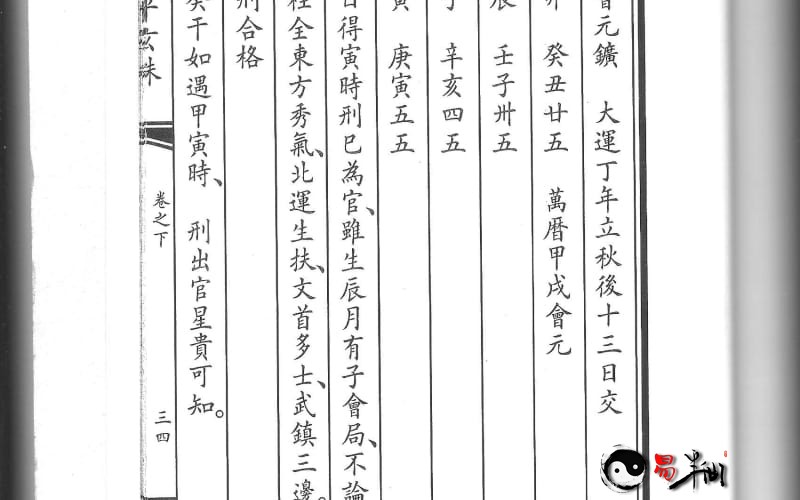 元鑛　大運丁年立秋後十三日交
癸丑廿五　萬曆甲戌會元
壬子卅五
辛亥四五
寅　庚寅五五
日得寅時刑巳為官、雖生辰月有子會局、不論
全東方秀氣、北運生扶、文首多士、武鎮三邊。
刑合格
癸干如遇甲寅時、　刑出官星貴可知。
玄珠
卷之下
三四
易半仙